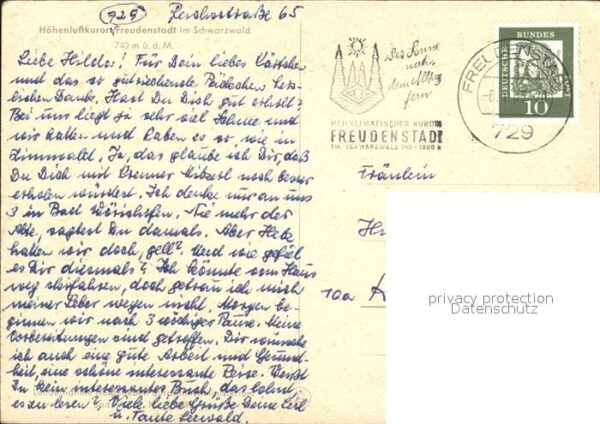 (729)
Höhenluftkurort Freudenstadt im Schwarzwald
740 m ü. d. M.
Liebe Hilde! Für Dein liebes Kärtchen
und das so gutriechende Päckchen herz-
lichen Dank. Hast Du Dich gut erholt?
Bei uns liegt ja sehr viel Schnee und
wir hatten und haben es so wie in
Ja, das glaube ich Dir, daß
Du Dich mit noch besser
erholen würdest. Ich denke nur an uns
3 in Bad Wörishofen. Nie mehr der
Alte, sagtest Du damals. Aber Hetz
hatten wir doch, gell? Und wie gefiel
es Dir diesmals? Ich könnte vom Haus
weg skifahren, doch getrau ich mich
meiner Leber wegen nicht. Morgen be-
ginnen wir nach 3 wöchiger Pause. Meine
Vorbereitungen sind getroffen. Dir wünsche
ich auch eine gute Arbeit und Gesund-
heit, eine schöne interessante Reise. Weißt
Du kein interessantes Buch, das lohnt
es zu lesen? Viele liebe Grüße Deine
u. Tante Seewald.
Der Sonne
nah,
dem Alltag
fern
HEILKLIMATISCHER KURORT
FREUDENSTADT
IM SCHWARZWALD 740-1000 m
FREUDENSTADT
729
DEUTSCHE BUNDESPOST
10
Fräulein
10a
privacy protection
Datenschutz